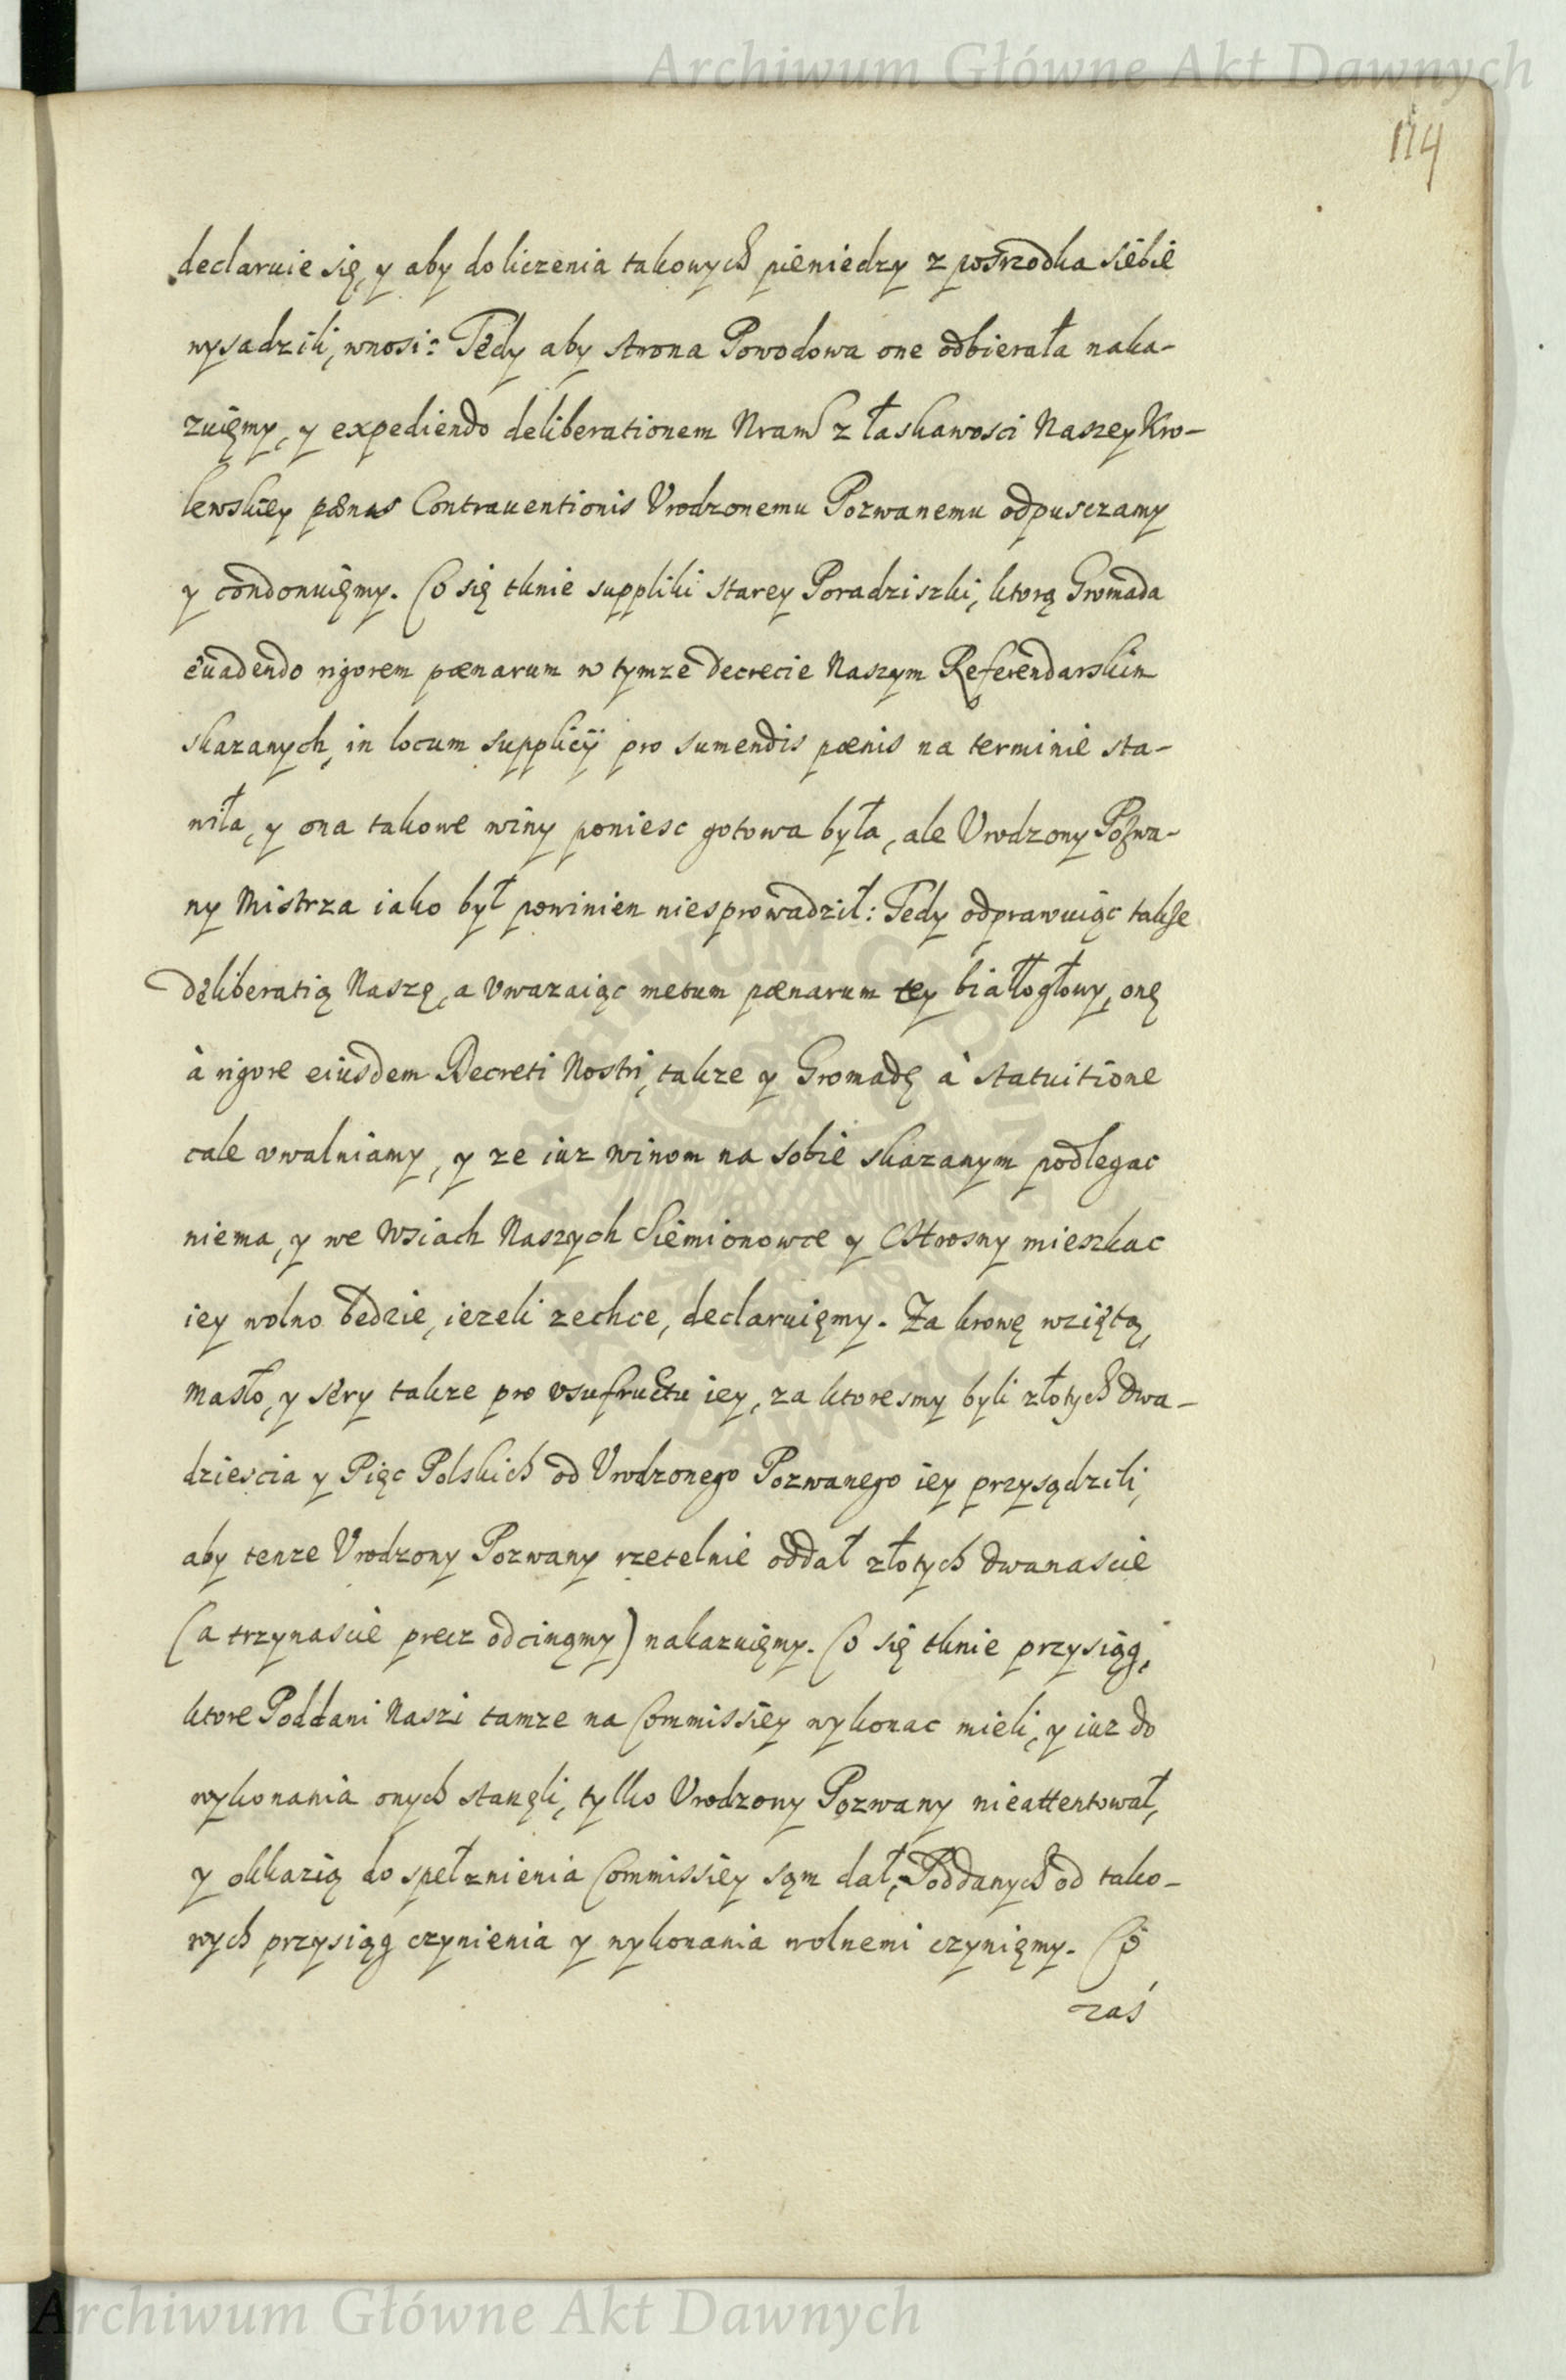 Archiwum Główne Akt Dawnych
114
declaruie się, y aby do liczenia takowych pieniedzy z posrzodka siebie
wysadzili, wnosi: Tedy aby strona Powodowa one odbierała naka-
zuięmy, y expediendo deliberationem Nram z łaskawosci Naszey Kro-
lewskiey pænas Contrauentionis Vrodzonemu Pozwanemu odpusczamy
y condonuięmy. Co się tknie suppliki starey Poradziszki, ktorą Gromada
euadendo rigorem pœnarum w tymze Decrecie Naszym Referendarskim
skazanych, in locum supplicij pro sumendis pœnis na terminie sta-
wiła, y ona takowe winy poniesc gotowa była, ale Vrodzony Pozwa-
ny Mistrza iako był powinien niesprowadził: Tedy odprawuiąc takze
Deliberatią Naszę, a vwazaiąc metum pœnarum tey białłogłowy, onę
à rigore eiusdem Decreti Nostri, takze y Gromadę à statuitione
cale vwalniamy, y ze iuz winom na sobie skazanym podlegac
niema, y we Wsiach Naszych Siemionowce y Ostrosny mieszkac
iey wolno bedzie, iezeli zechce, declaruięmy. Za krowę wziętą,
masło, y sery takze pro vsufructu iey, za ktoresmy byli złotych dwa-
dziescia y Pięc Polskich od Vrodzonego Pozwanego iey przysądzili,
aby tenze Vrodzony Pozwany rzetelnie oddał złotych dwanascie
(a trzynascie precz odcinąmy) nakazuięmy. Co się tknie przysiąg,
ktore Poddani Naszi tamze na Commissiey wykonac mieli, y iuz do
wykonania onych stanęli, tylko Vrodzony Pozwany nieattentował,
y okkazią do spełznienia Commissiey sąm dał, Poddanych od tako-
wych przysiąg czynienia y wykonania wolnemi czynięmy. Co
zaś
Archiwum Główne Akt Dawnych